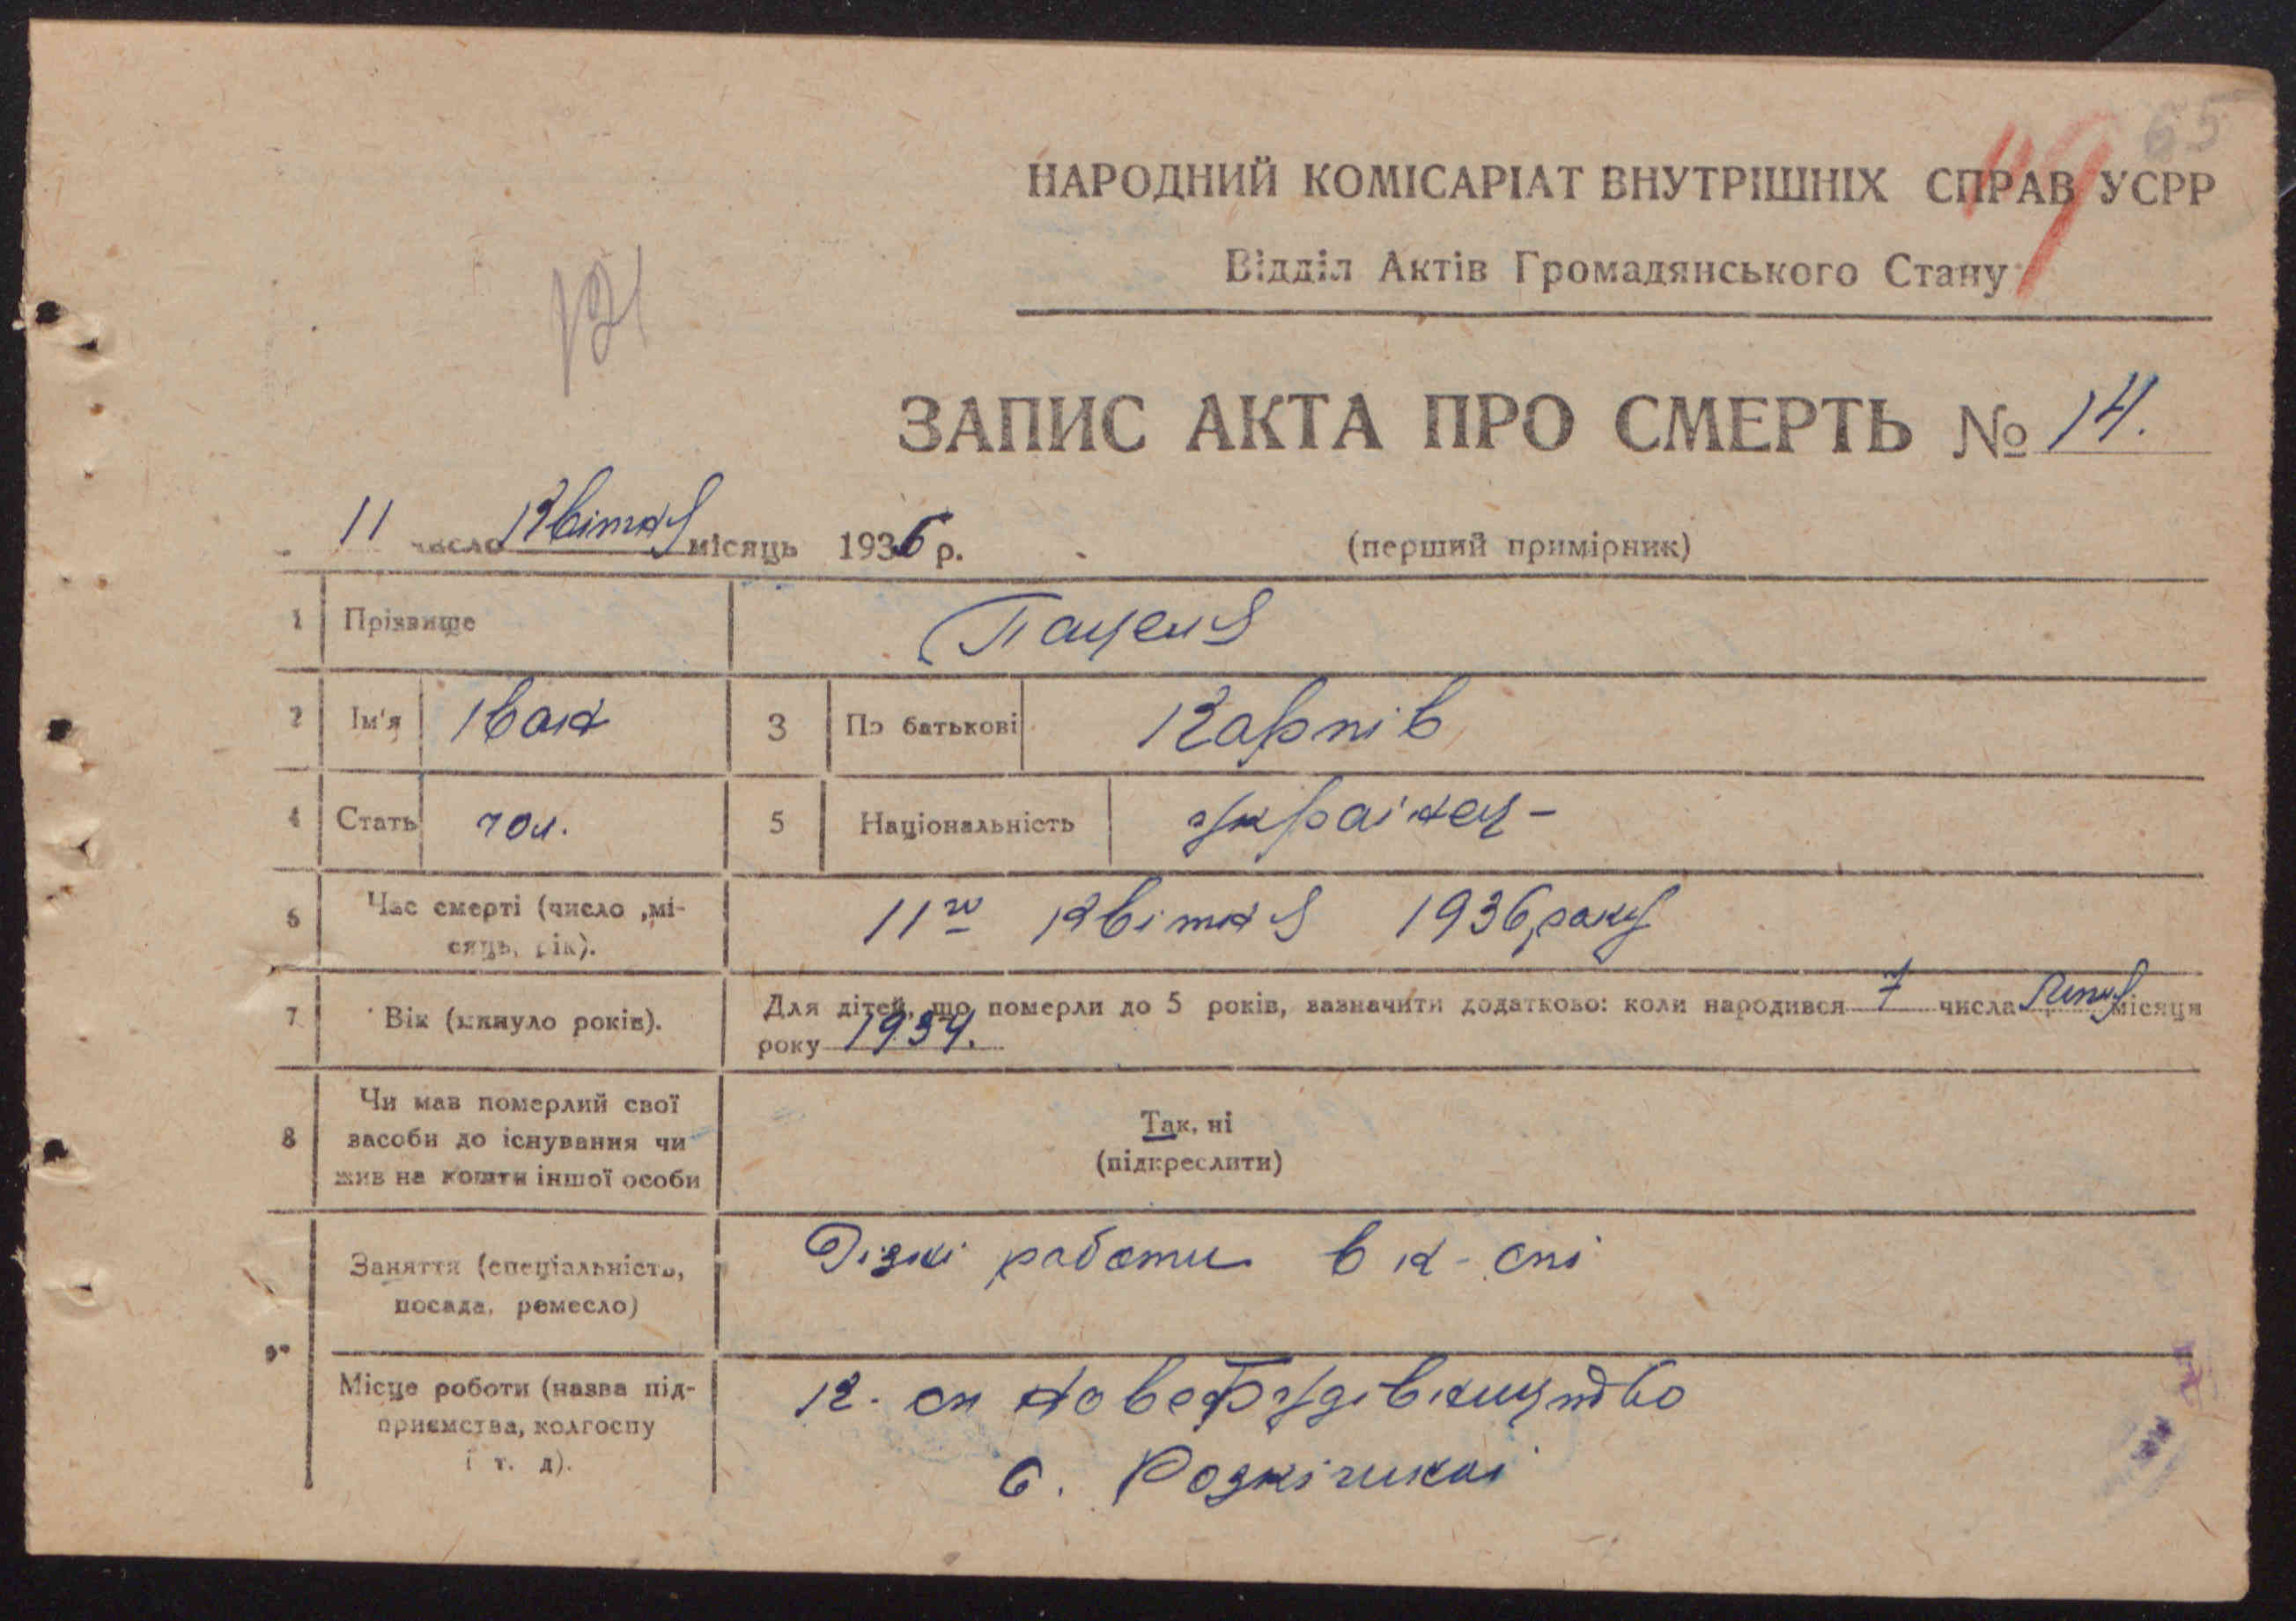 65
49
НАРОДНИЙ КОМІСАРІАТ ВНУТРІШНІХ СПРАВ УСРР
Відділ Актів Громадянського Стану
ЗАПИС АКТА ПРО СМЕРТЬ № 14.
11 число Квітня місяць 1936 р. (перший примірник)
1 Прізвище Пацеля
2 Ім'я Іван 3 По батькові Карпів
4 Стать чол. 5 Національність українец-
6 Час смерті (число ,мі-
сяць, рік). 11го Квітня 1936 року
7 Вік (минуло років). Для дітей, що померли до 5 років, зазначити додатково: коли народився 7 числа Липня місяця
року 1934.
8 Чи мав померлий свої
засоби до існування чи
жив на кошти іншої особи
Так, ні
(підкреслити)
9 Заняття (спеціальність,
посада, ремесло)
Різні работи в к-спі
Місце роботи (назва під-
приємства, колгоспу
і т. д).
к. сп Нове
с.